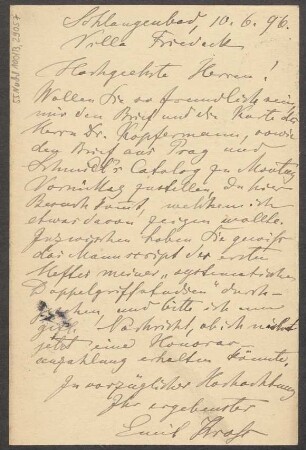 55 Nachl 100/B, 23057
Schlangenbad, 10.6.96.
Villa Friedeck
Hochgeehrte Herren!
Wollen Sie so freundlich sein,
mir den Brief und die Karte des
Herrn Dr. Kopfermann, sowie
den Brief aus Prag und
Schmidt's Catalog zu Montag
Vormittag zustellen, da hier
Besuch kommt, welchem ich
etwas davon zeigen wollte.
Inzwischen haben Sie gewiss
das Manuscript des ersten
Heftes meiner „systematischen
Doppelgriffstudien" durch-
gesehen, und bitte ich um
Nachricht, ob ich nicht
jetzt eine Honorar-
anzahlung erhalten könnte.
In vorzüglicher Hochachtung
Ihr ergebenster
Emil Kross